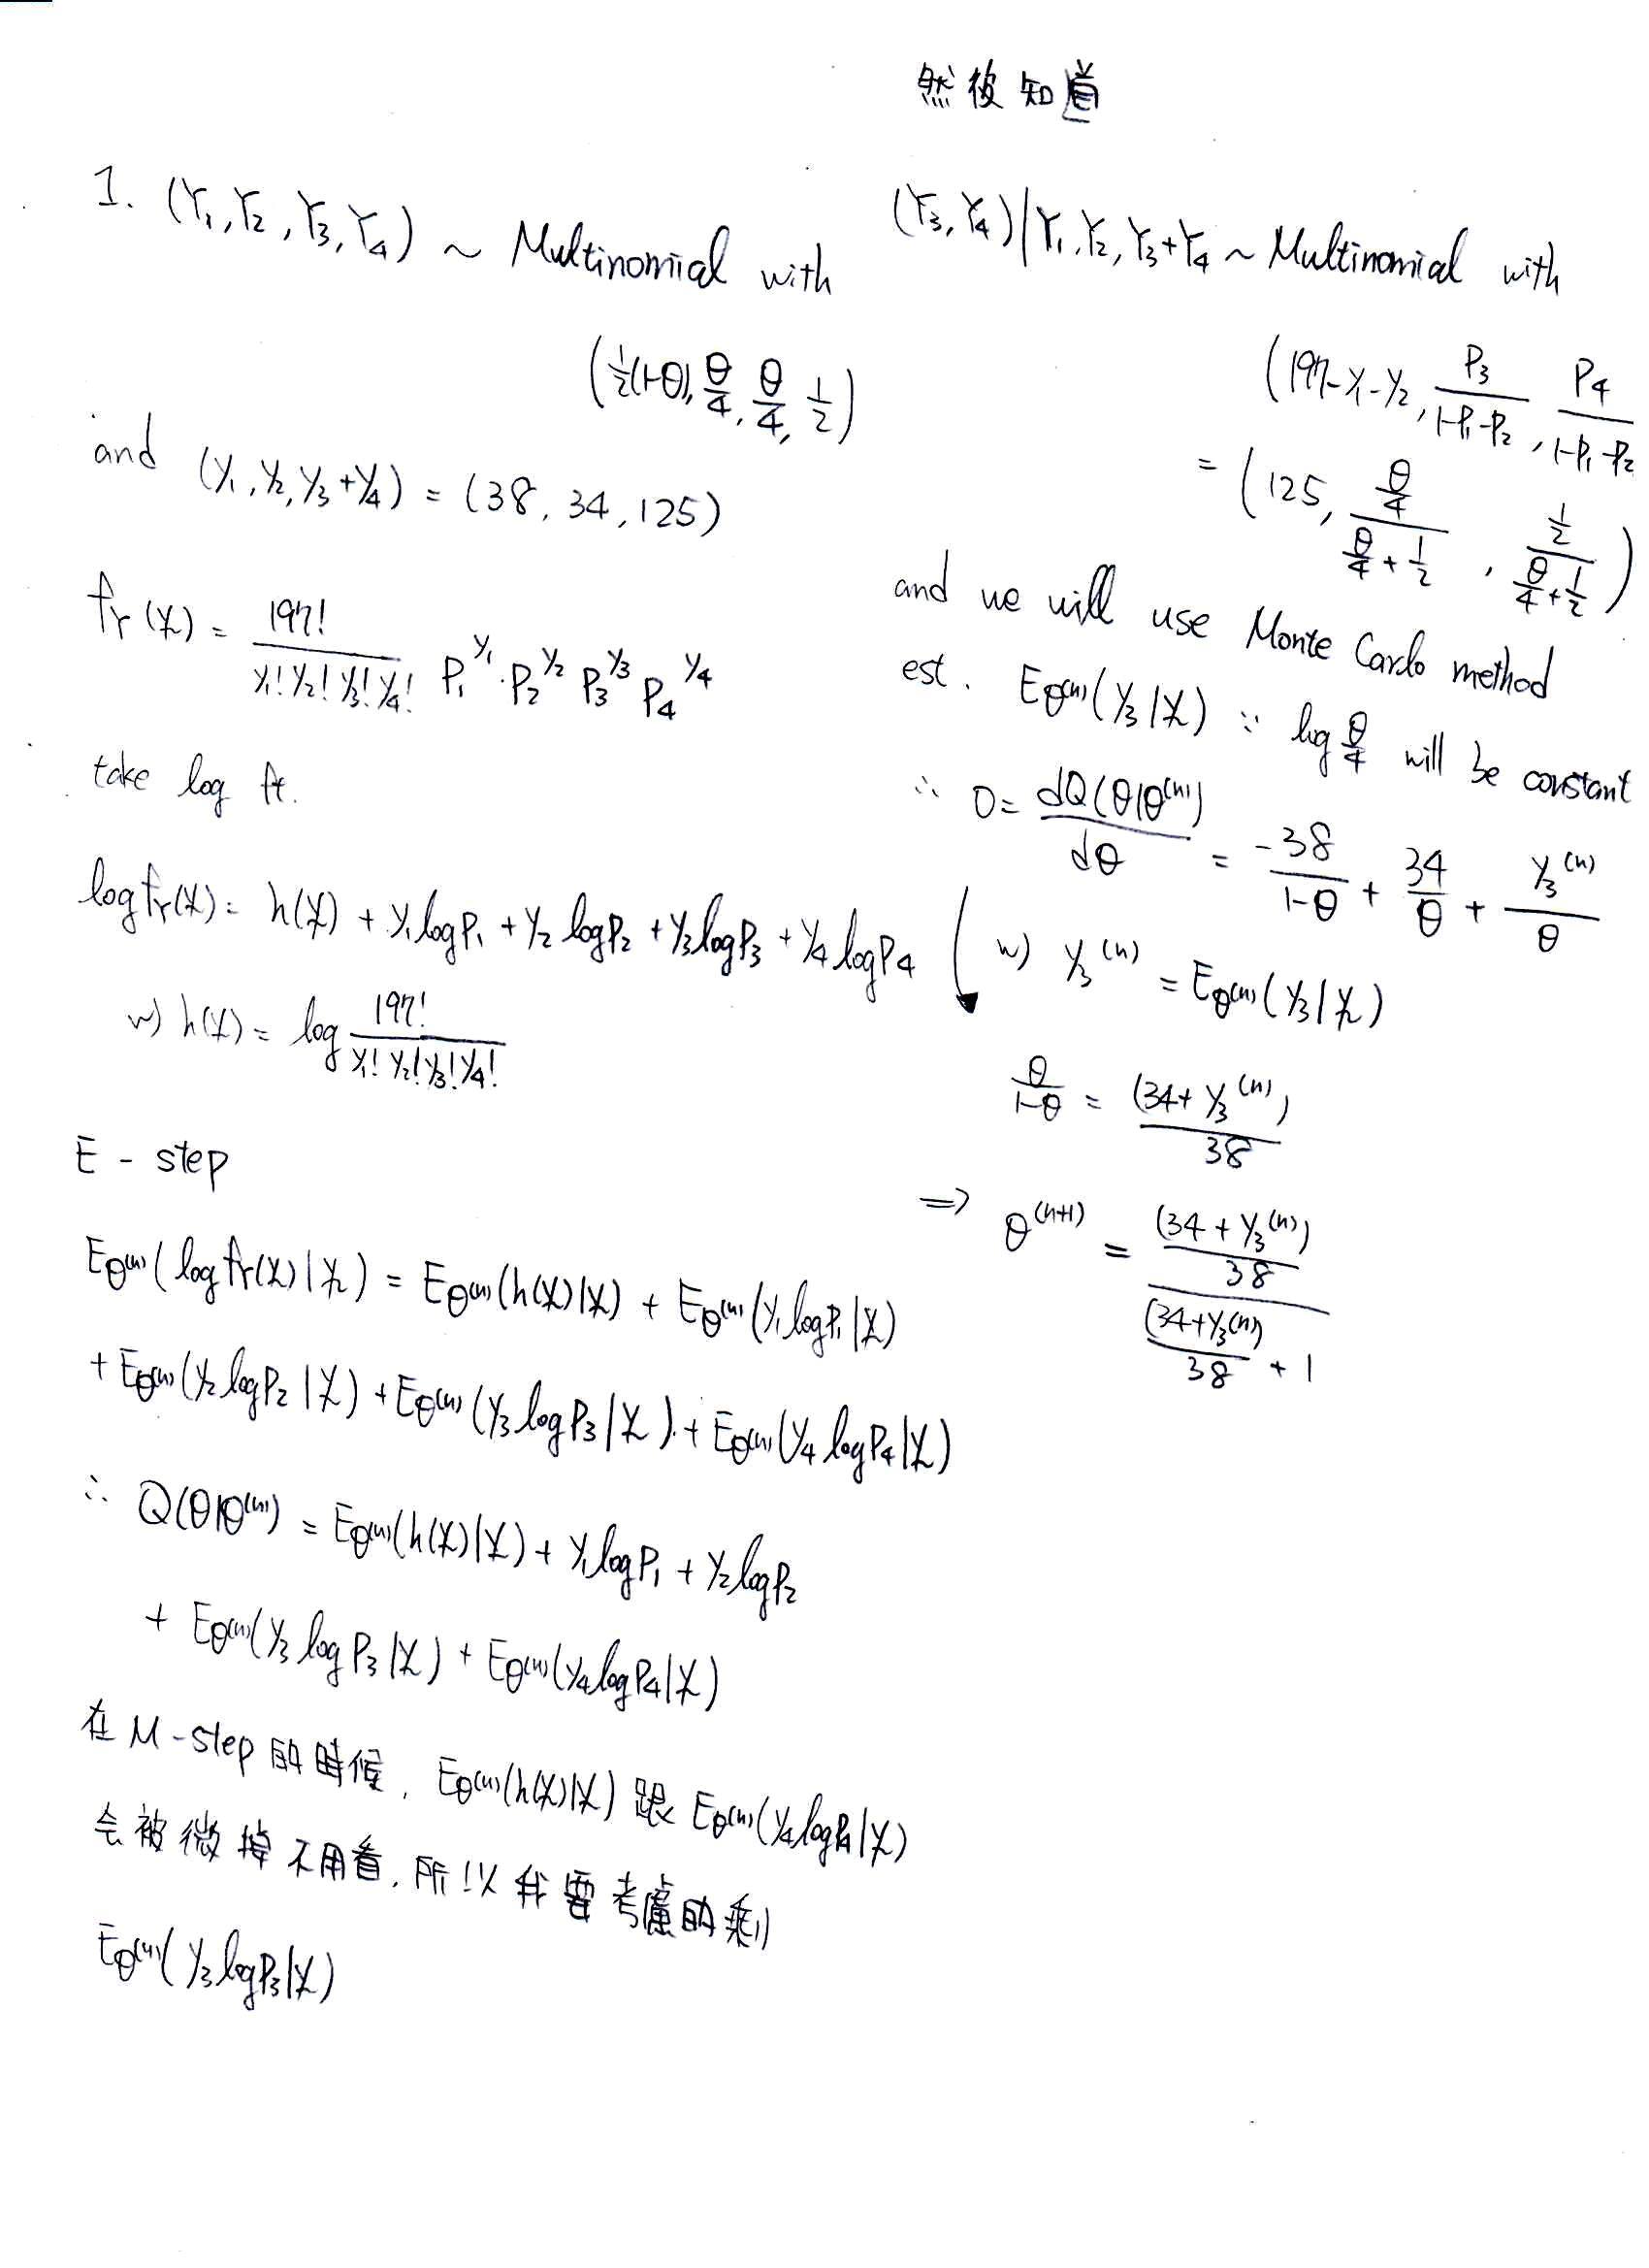 1. (Y₁, Y₂, Y₃, Y₄) ~ Multinomial with
(½(1-θ), θ/4, θ/4, 1/2)
and (y₁, y₂, y₃+y₄) = (38, 34, 125)
f_Y(y) = 197! / (y₁! y₂! y₃! y₄!) P₁^y₁ · P₂^y₂ P₃^y₃ P₄^y₄
take log ft.
log f_Y(y) = h(y) + y₁logP₁ + y₂logP₂ + y₃logP₃ + y₄logP₄
w) h(y) = log 197! / (y₁! y₂! y₃! y₄!)
E - step
E_θ⁽ⁿ⁾(log f_Y(y) | y) = E_θ⁽ⁿ⁾(h(y)|y) + E_θ⁽ⁿ⁾(y₁logP₁|y)
+ E_θ⁽ⁿ⁾(y₂logP₂|y) + E_θ⁽ⁿ⁾(y₃logP₃|y) + E_θ⁽ⁿ⁾(y₄logP₄|y)
∴ Q(θ|θ⁽ⁿ⁾) = E_θ⁽ⁿ⁾(h(y)|y) + y₁logP₁ + y₂logP₂
+ E_θ⁽ⁿ⁾(y₃logP₃|y) + E_θ⁽ⁿ⁾(y₄logP₄|y)
在 M-step 的時候, E_θ⁽ⁿ⁾(h(y)|y) 跟 E_θ⁽ⁿ⁾(y₄logP₄|y)
会被微掉不用看, 所以我要考慮的剩
E_θ⁽ⁿ⁾(y₃logP₃|y)
然後知道
(Y₃, Y₄)|Y₁, Y₂, Y₃+Y₄ ~ Multinomial with
(197-y₁-y₂, P₃/(1-P₁-P₂), P₄/(1-P₁-P₂
= (125, (θ/4)/(θ/4+1/2), (1/2)/(θ/4+1/2))
and we will use Monte Cardo method
est. E_θ⁽ⁿ⁾(y₃|y) ∵ log θ/4 will be constant
∴ 0 = dQ(θ|θ⁽ⁿ⁾)/dθ = -38/(1-θ) + 34/θ + y₃⁽ⁿ⁾/θ
w) y₃⁽ⁿ⁾ = E_θ⁽ⁿ⁾(y₃|y)
θ/(1-θ) = (34+y₃⁽ⁿ⁾)/38
⇒ θ⁽ⁿ⁺¹⁾ = ((34+y₃⁽ⁿ⁾)/38) / ((34+y₃⁽ⁿ⁾)/38 + 1)